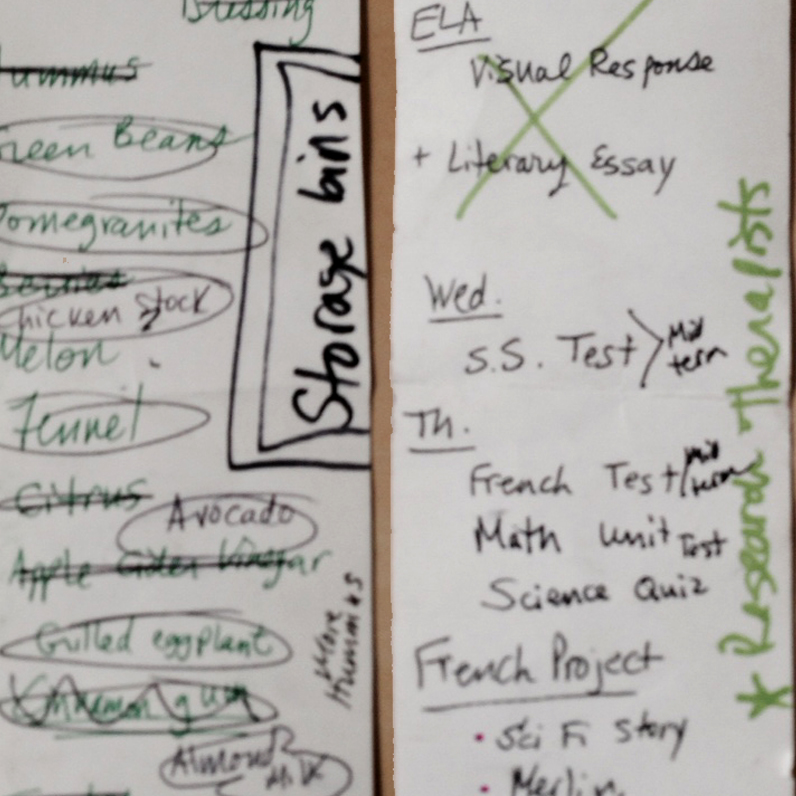 Dressing
Hummus
Green Beans
Pomegranites
Berries
Chicken Stock
Melon
Fennel
Citrus
Avocado
Apple Cider Vinegar
Grilled eggplant
Cinnemon gum
Almond
Milk
Storage bins
More
Hummus
ELA
Visual Response
+ Literary Essay
Wed.
S.S. Test > Mid
term
Th.
French Test / Mid
term
Math Unit Test
Science Quiz
French Project
• Sci Fi Story
• Merlin
* Research Therapists